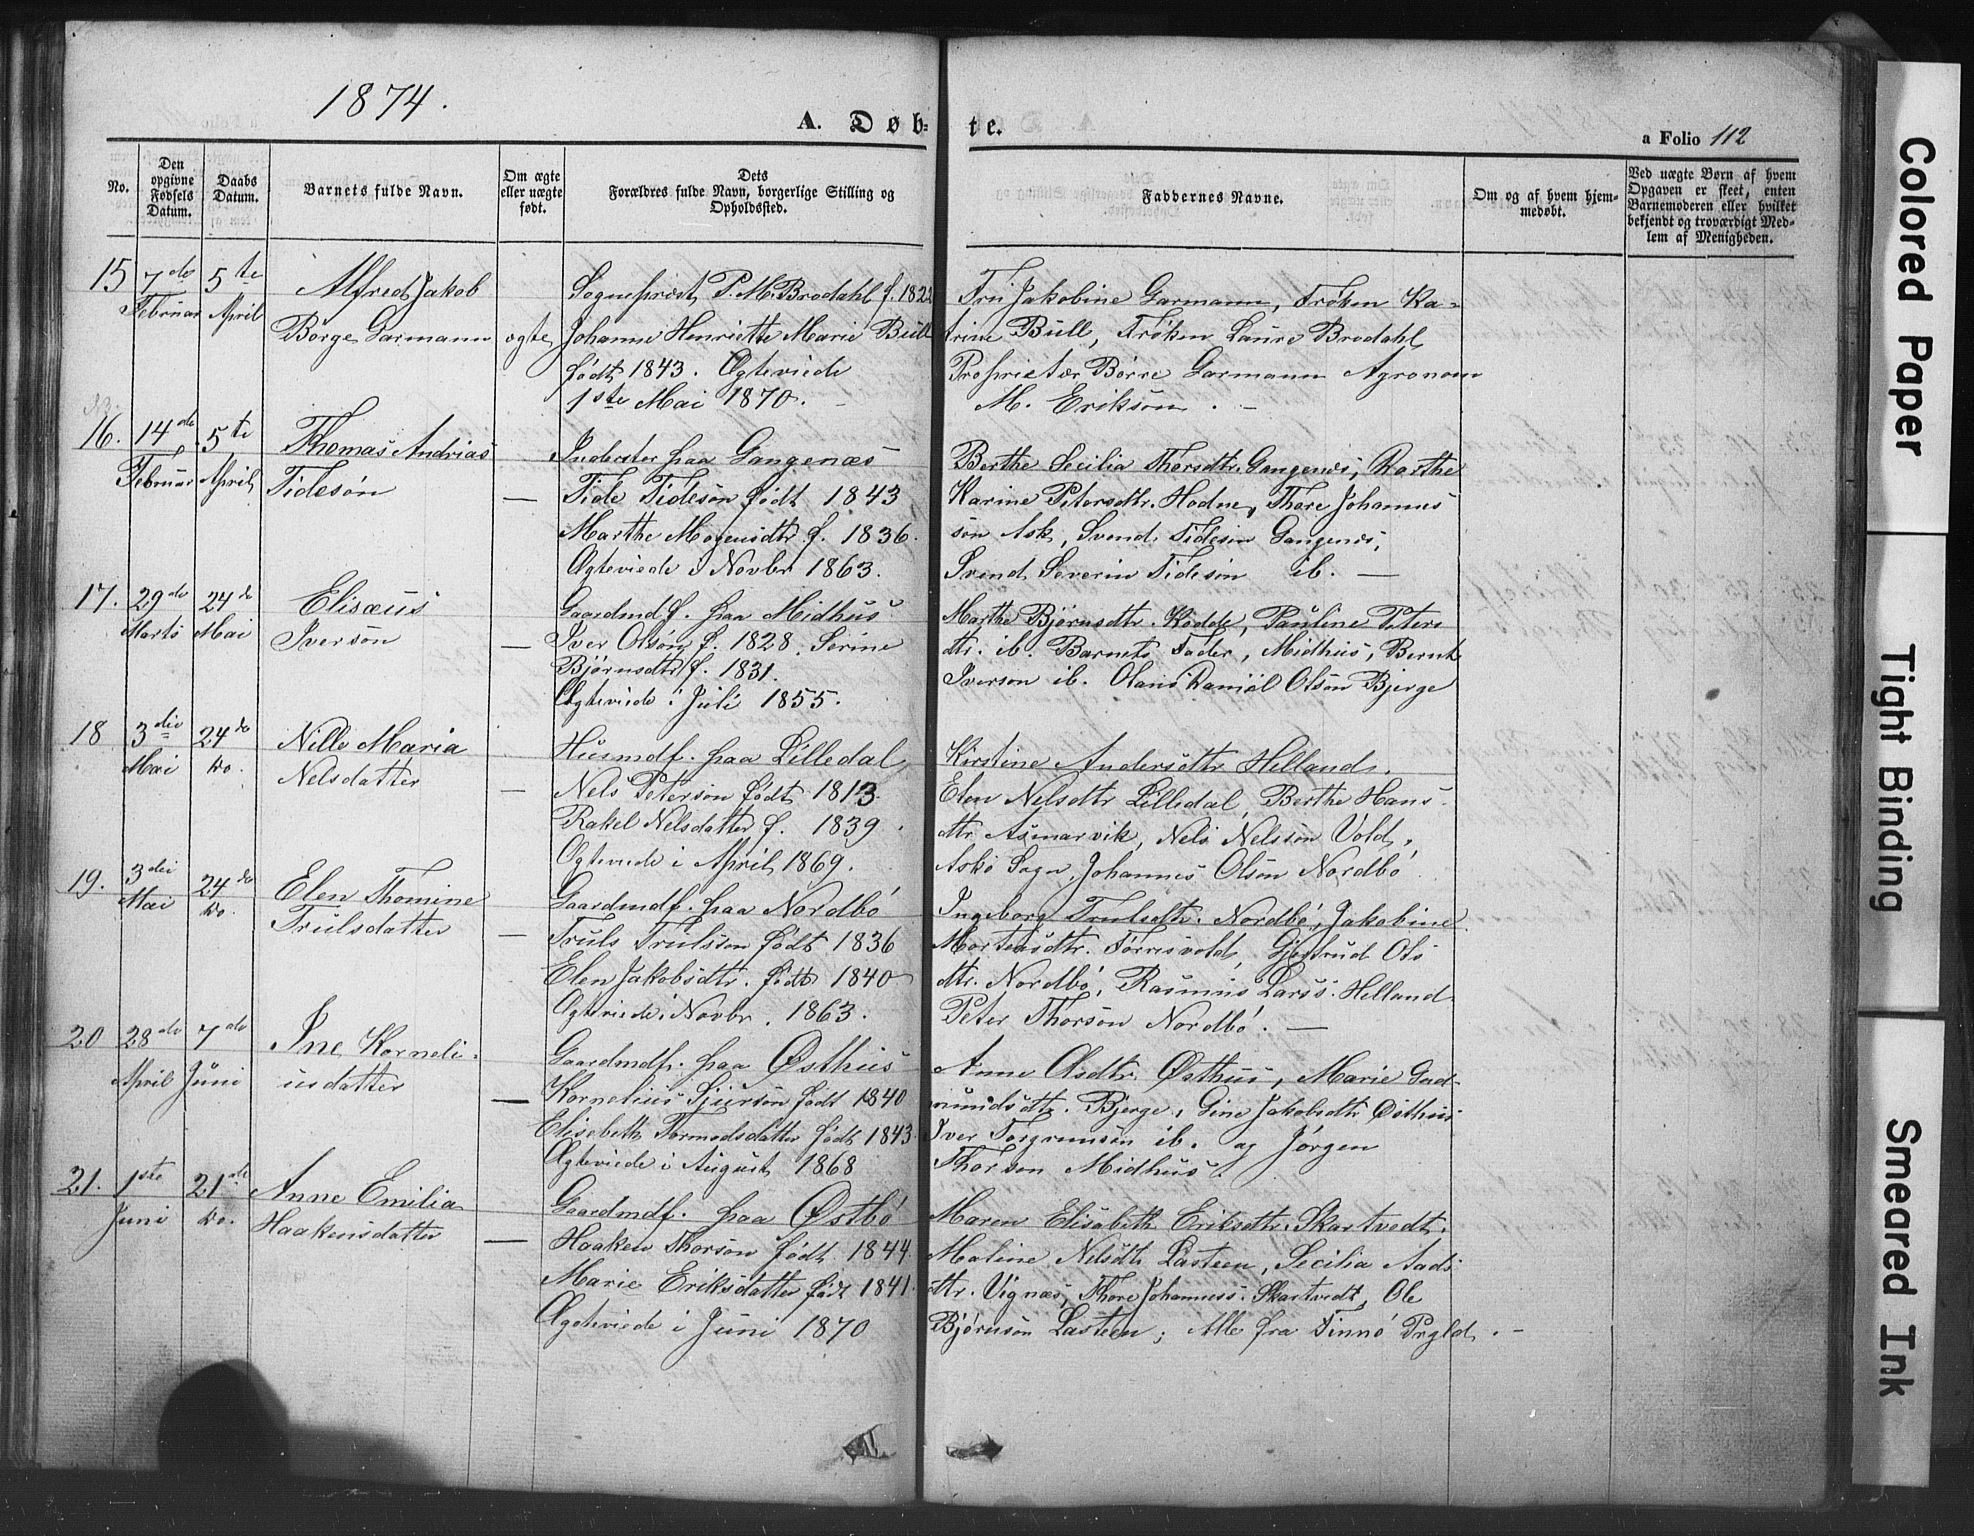 1874.
A. Døb-
te.
a Folio 112
No.
Den
opgivne
Fødsels
Datum.
Daabs
Datum.
Barnets fulde Navn.
Om ægte
eller uægte
født.
Dets
Forældres fulde Navn, borgerlige Stilling og
Opholdssted.
Faddernes Navne.
Om og af hvem hjem-
medøbt.
Ved uægte Børn af hvem
Opgaven er skeet, enten
Barnemoderen eller hvilket
bekjendt og troværdigt Med-
lem af Menigheden.
15 7de 5te Alfred Jakob
Februar April Børge Garmann ægte
Sognepræst P. M. Brodahl f. 1822
Johanne Henriette Marie Bull
født 1843. Ægteviede
1ste Mai 1870.
Fru Jakobine Garmann, Frøken Ka-
trine Bull, Frøken Laura Brodahl
Proprietær Børre Garmann Agronom
M. Erikson. –
16. 14de 5te Thomas Andrias
Februar April Tidesøn —
Inderster paa Gangenæs
Tide Tidesøn født 1843
Marthe Mogensdtr f. 1836.
Ægteviede i Novbr 1863.
Berthe Secilia Thorsdtr. Gangenæs, Marthe
Karine Petersdtr. Hodne, Thore Johannes
søn Ask, Svend Tidesøn Gangenæs,
Svend Severin Tidesøn ib. —
17. 29de 24de Elisæus
Marts Mai Iversøn —
Gaardmdf. paa Midhus
Iver Olsøn f. 1828. Serine
Bjørnsdtr f. 1831.
Ægteviede i Juli 1855.
Marthe Bjørnsdtr. Kodde, Pauline Peters
dtr. ib. Barnets Fader, Midhus, Bernt
Iverson ib. Olans Daniel Olsøn Bjerge
18 3die 24de Nille Maria
Mai do. Nelsdatter —
Husmdf. paa Lilledal
Nels Petersøn født 1813
Rakel Nelsdatter f. 1839.
Ægteviede i April 1869.
Kirstine Andersdtr Helland.
Elen Nelsdtr Lilledal, Berthe Hans
dtr. Asmarvik, Nels Nelssøn Vold,
Askø Sogn, Johannes Olsøn Nordbø
19. 3die 24de Elen Thomine
Mai do. Trulsdatter —
Gaardmdf. paa Nordbø
Truls Trulssøn født 1836
Elen Jakobsdtr. født 1840
Ægteviede i Novbr. 1863.
Ingeborg Trulsdtr. Nordbø, Jakobine
Mortensdtr. Torrisvold, Gjertrud Ols
dtr. Nordbø, Rasmus Larss. Helland
Peter Thorsøn Nordbø. —
20 28de 7de Ine Korneli-
April Juni usdatter —
Gaardmdf. paa Østhus
Kornelius Sjursøn født 1840
Elisebeth Tormodsdatter født 1843.
Ægteviede i August 1868
Anne Olsdtr. Østhus, Marie Gud-
mundsdtr. Bjerge, Gine Jakobsdtr Østhus
Iver Torgrimsøn ib. og Jørgen
Thorson Midhus.
21. 1ste 21de Anne Emilia
Juni do. Haakensdatter —
Gaardmdf. paa Østbø
Haaken Thorsøn født 1844.
Marie Eriksdatter født 1841.
Ægteviede i Juni 1870
Maren Elisabeth Eriksdtr. Skartvedt,
Maline Nelsdtr Lasteen, Secilia Aads
dtr. Vignæs, Thore Johanness. Skartvedt, Ole
Bjørnsøn Lasteen; Alle fra Finnø Prgld. –
Colored Paper
Tight Binding
Smeared Ink